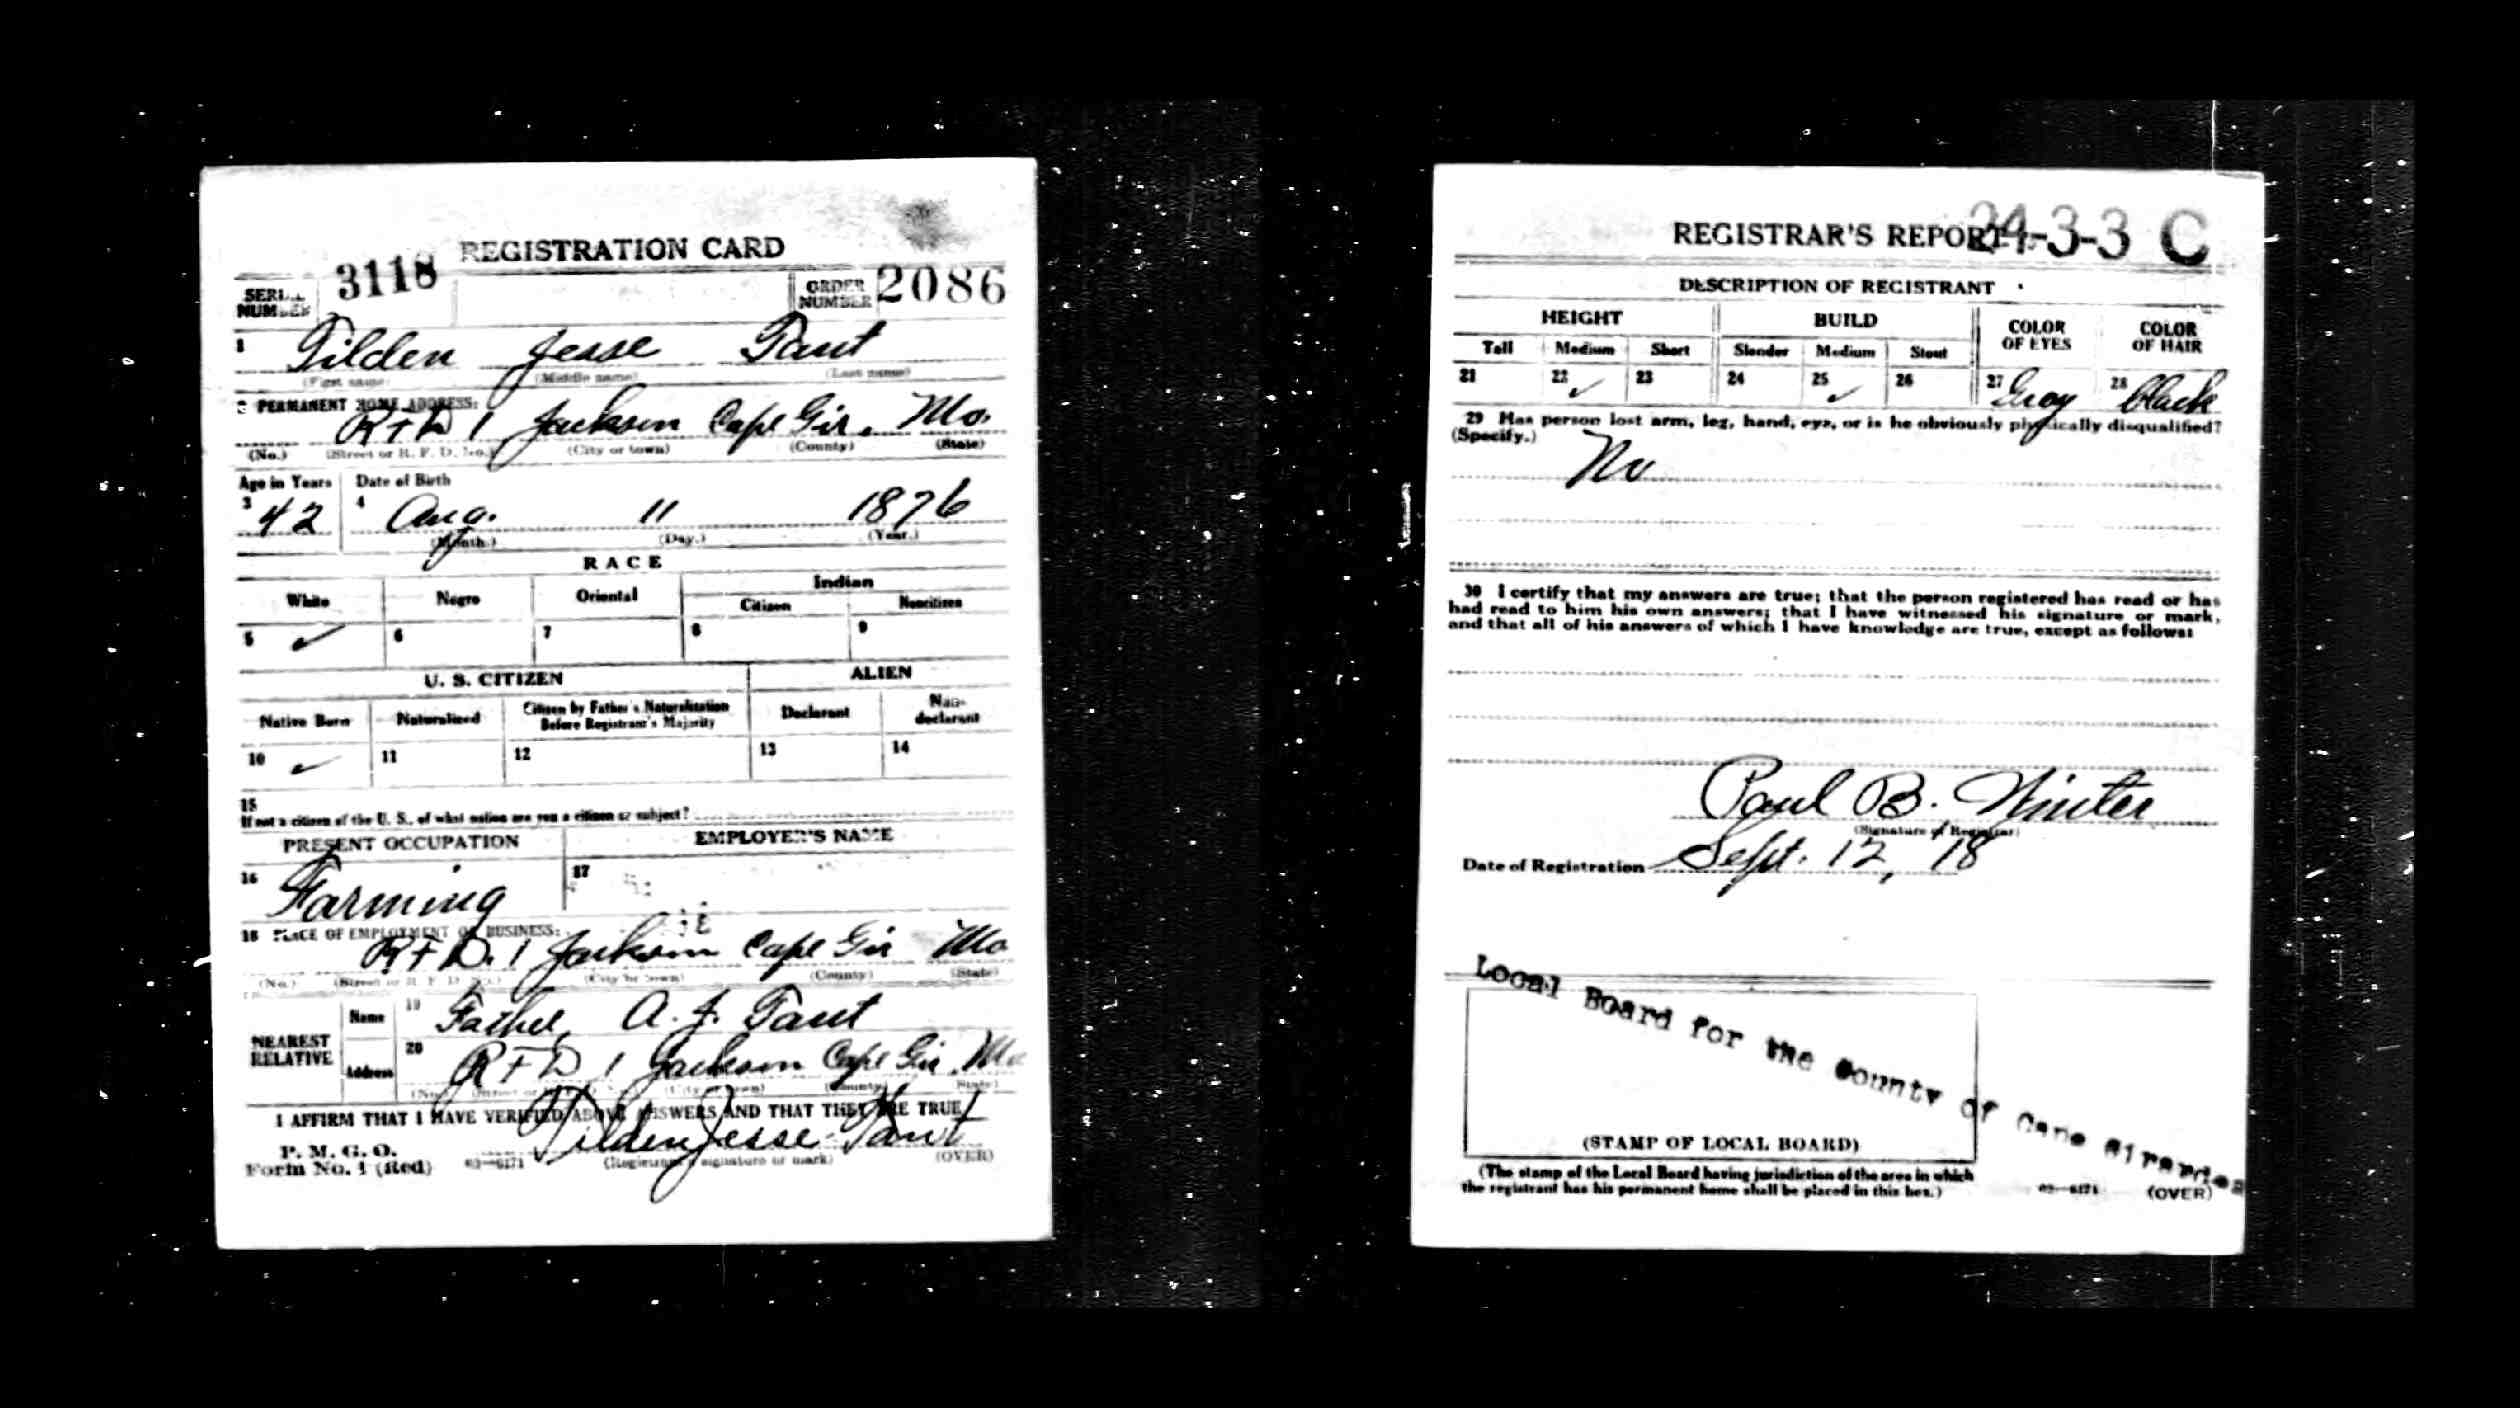 REGISTRATION CARD
SERIAL NUMBER 3118 ORDER NUMBER 2086
1 Tilden Jesse Taut
(First name) (Middle name) (Last name)
2 PERMANENT HOME ADDRESS:
R F D 1 Jackson Cape Gir. Mo.
(No.) (Street or R. F. D. No.) (City or town) (County) (State)
Age in Years Date of Birth
3 42 4 Aug. 11 1876
(Month.) (Day.) (Year.)
RACE
White Negro Oriental Indian
Citizen Noncitizen
5 ✓ 6 7 8 9
U. S. CITIZEN ALIEN
Native Born Naturalized Citizen by Father's Naturalization Before Registrant's Majority Declarant Non-declarant
10 ✓ 11 12 13 14
15
If not a citizen of the U. S., of what nation are you a citizen or subject?
PRESENT OCCUPATION EMPLOYER'S NAME
16 Farming 17
18 PLACE OF EMPLOYMENT OR BUSINESS:
R F D. 1 Jackson Cape Gir Mo
(No.) (Street or R. F. D. No.) (City or town) (County) (State)
NEAREST RELATIVE
Name 19 Father, A. J. Taut
Address 20 R F D 1 Jackson Cape Gir. Mo
(No.) (Street or R. F. D. No.) (City or town) (County) (State)
I AFFIRM THAT I HAVE VERIFIED ABOVE ANSWERS AND THAT THEY ARE TRUE
P. M. G. O.
Form No. 1 (Red) 03—6171 Tilden Jesse Taut
(Registrant's signature or mark) (OVER)
REGISTRAR'S REPORT
24-3-3 C
DESCRIPTION OF REGISTRANT
HEIGHT BUILD COLOR OF EYES COLOR OF HAIR
Tall Medium Short Slender Medium Stout
21 22 ✓ 23 24 25 ✓ 26 27 Gray 28 black
29 Has person lost arm, leg, hand, eye, or is he obviously physically disqualified?
(Specify.)
No
30 I certify that my answers are true; that the person registered has read or has
had read to him his own answers; that I have witnessed his signature or mark,
and that all of his answers of which I have knowledge are true, except as follows:
Paul B. Winter
(Signature of Registrar)
Date of Registration Sept. 12, '18
Local Board for the County of Cape Girardea
(STAMP OF LOCAL BOARD)
(The stamp of the Local Board having jurisdiction of the area in which
the registrant has his permanent home shall be placed in this box.)
03—6171 (OVER)